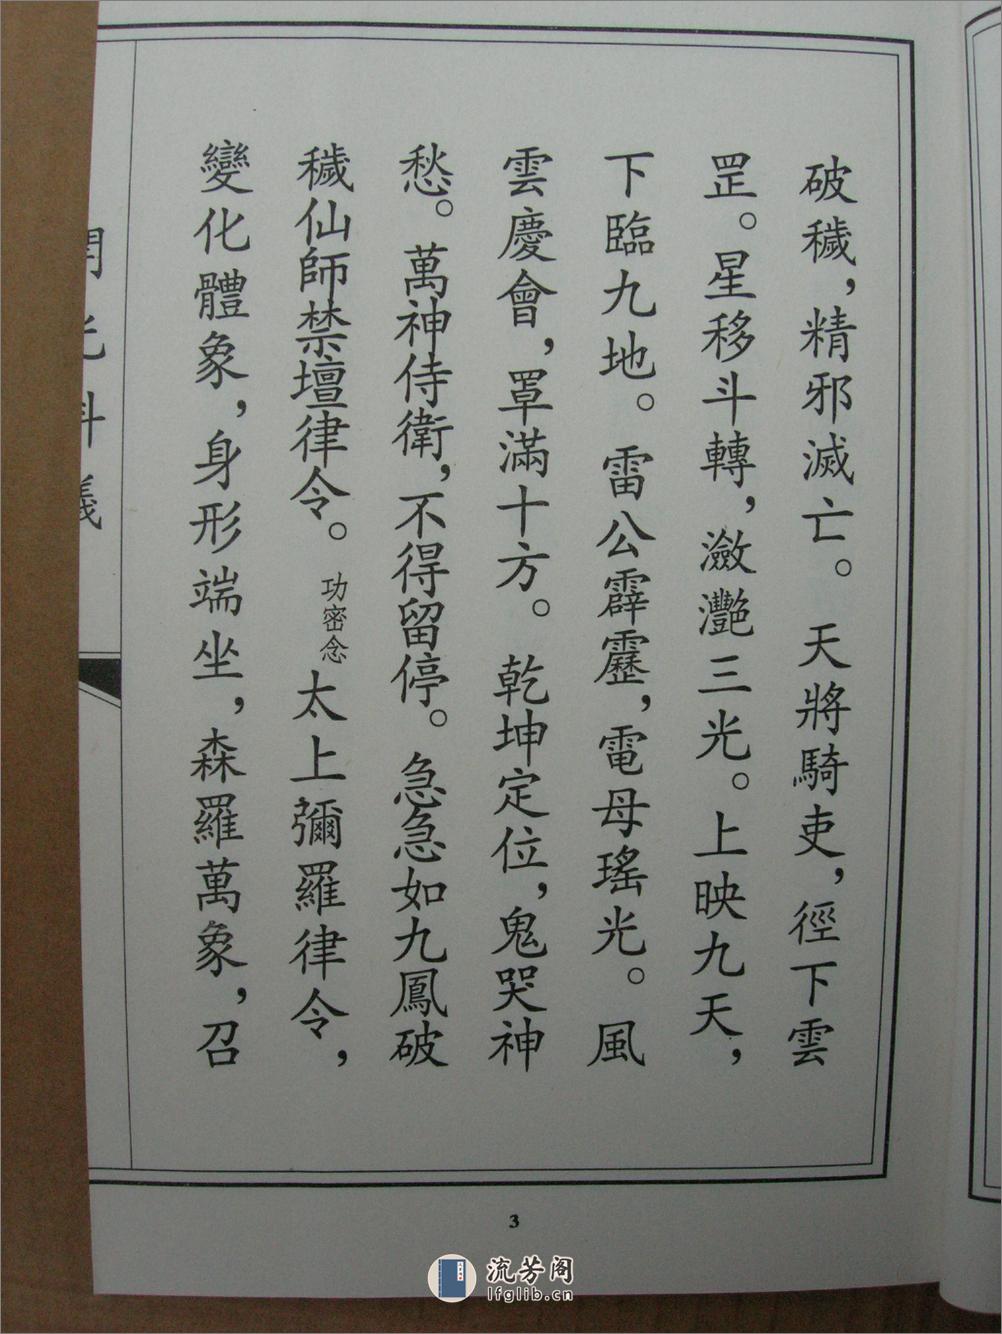 破穢，精邪滅亡。天將騎吏，徑下雲
罡。星移斗轉，瀲灩三光。上映九天，
下臨九地。雷公霹靂，電母瑤光。風
雲慶會，罩滿十方。乾坤定位，鬼哭神
愁。萬神侍衛，不得留停。急急如九鳳破
穢仙師禁壇律令。功密念太上彌羅律令，
變化體象，身形端坐，森羅萬象，召
開光科儀
3
流芳阁
lfglib.cn